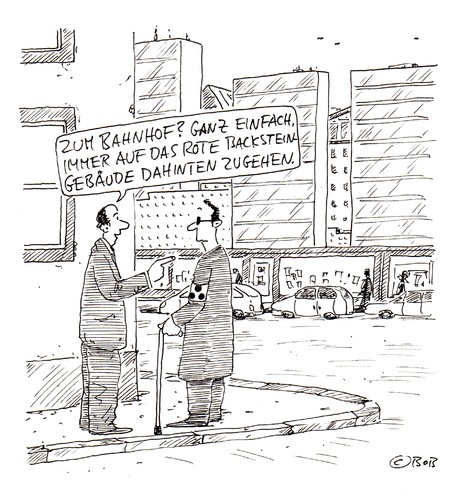 ZUM BAHNHOF? GANZ EINFACH,
IMMER AUF DAS ROTE BACKSTEIN-
GEBÄUDE DAHINTEN ZUGEHEN.
© BOB